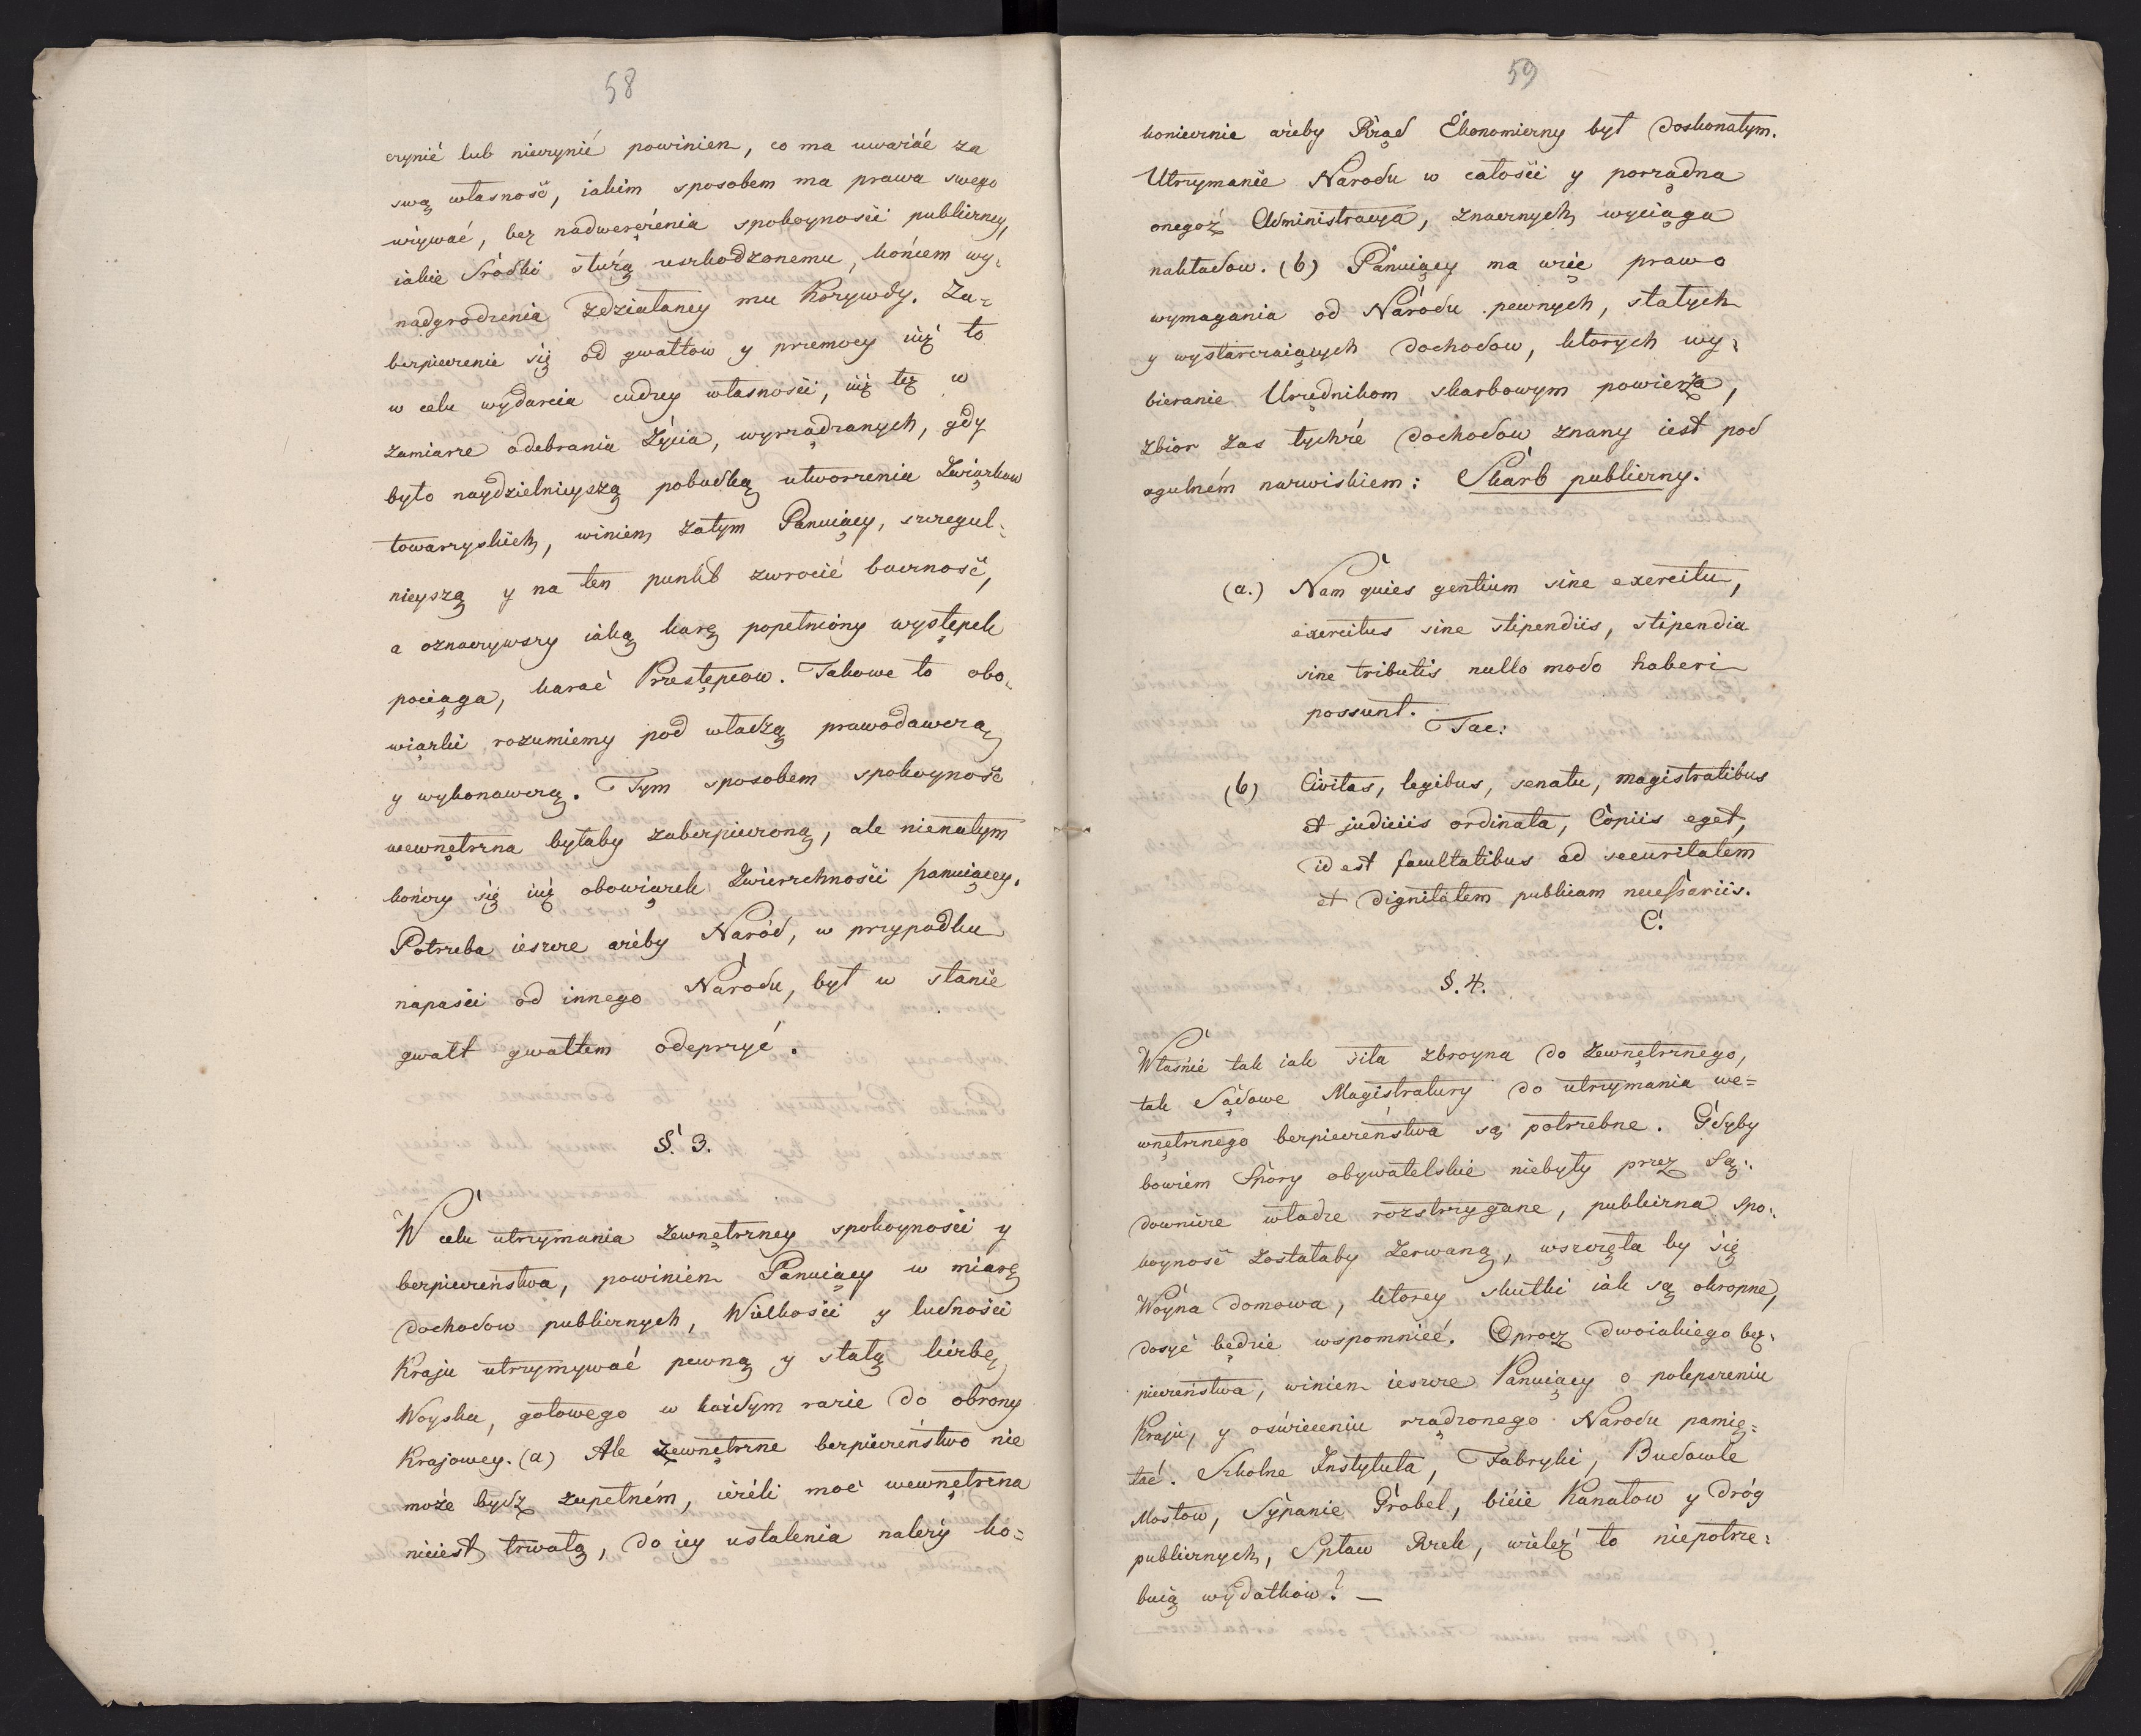 58
czynić lub nieczynić powinien, co ma uważać za
swą własność, iakim sposobem ma prawa swego
używać, bez nadweręźenia spokoynosci publiczney,
iakie Srodki służą uszkodzonemu, końcem wy„
nadgrodzenia zdziałaney mu Korzywdy. Za-
bezpieczenie się od gwałtow y przemocy iuż to
w celu wydarcia cudzey własności, iuż też w
zamiarze odebrania Życia, wyrządzanych, gdy
było naydzielnieyszą pobudką utworzenia Związkow
towarzyskich, winien zatym Panuiący, szczegul„
nieyszą y na ten punkt zwrocić baczność,
a oznaczywszy iaką karę popełniony występek
pociąga, karać Przestępcow. Takowe to obo„
wiązki rozumiemy pod władzą prawodawczą
y wykonawczą. Tym sposobem spokoyność
wewnętrzna byłaby zabezpieczoną, ale nienatym
kończy się iuż obowiązek Zwierzchności panuiącey.
Potrzeba ieszcze ażeby Naród, w przypadku
napaści od innego Narodu, był w stanie
gwałt gwałtem odeprzyć.
§. 3.
W celu utrzymania Zewnętrzney spokoyności y
bezpieczeństwa, powinien Panuiący w miarę
dochodow publicznych, Wielkości y ludności
Kraju utrzymywać pewną y stałą liczbę
Woyska, gotowego w każdym razie do obrony
Krajowey. (a) Ale zewnętrzne bezpieczeństwo nie
może bydz zupełném, ieżeli moc wewnętrzna
nieiest trwałą, do iey ustalenia należy ko=
59
koniecznie ażeby Rząd Ekonomiczny był doskonałym.
Utrzymanie Narodu w całości y porządna
onegoż Administracya, znacznych wyciąga
nakładow. (b) Panuiący ma więc prawo
wymagania od Narodu pewnych, stałych
y wystarczaiących dochodow, ktorych wy„
bieranie Urzędnikom skarbowym powierza,
zbior zas tychże dochodow znany iest pod
ogulném nazwiskiem: Skarb publiczny.
(a.) Nam quies gentium sine exercitu,
exercitus sine stipendiis, stipendia
sine tributis nullo modo haberi
possunt.
Tac:
(b) Civitas, legibus, senatu, magistratibus
et judiciis ordinata, Copiis eget,
id est facultatibus ad securitatem
et dignitatem publicam necessariis.
C.
§. 4.
Właśnie tak iak siła zbroyna do Zewnętrznego,
tak Sądowe Magistratury do utrzymania we=
wnętrznego bezpieczeństwa są potrzebne. Gdyby
bowiem Spory obywatelskie niebyły przez Są„
downicze władze rozstrzygane, publiczna spo„
koyność zostałaby Zerwaną, wszczęła by się
Woyna domowa, ktorey skutki iak są okropne,
dosyć będzie wspomnieć. Oprocz dwoiakiego bez„
pieczeństwa, winien ieszcze Panuiący o polepszeniu
Kraju, y oświeceniu rządzonego Narodu pamię=
tać. Szkolne Instytuta, Fabryki, Budowle
Mostow, Sypanie Grobel, bicie Kanałow y dróg
publicznych, Spław Rzek, wieleż to niepotrze„
buią wydatkow? —